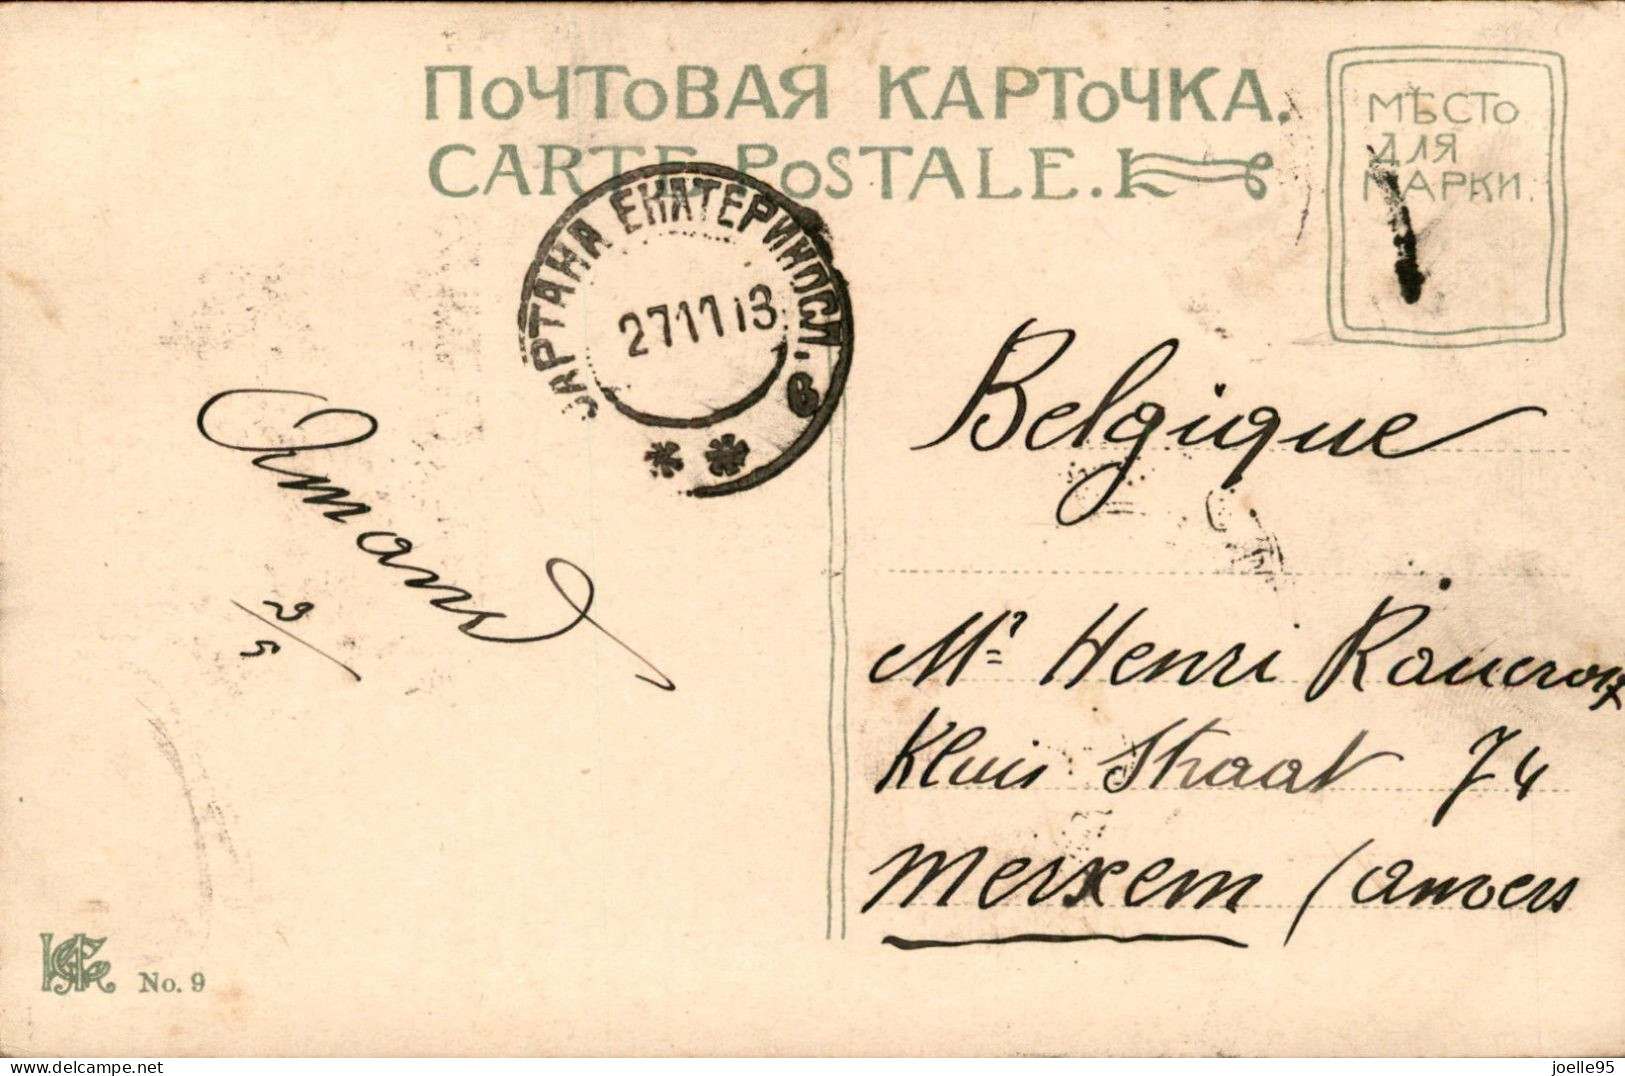 ПОЧТОВАЯ КАРТОЧКА.
CARTE POSTALE.
МѢСТО
ДЛЯ
МАРКИ.
САРТАНА ЕКАТЕРИНОСЛ. в
27 11 13
Armand
Belgique
Mr Henri
Kluis Straat 74
Merxem (Anvers
No. 9
delcampe.net
joelle95